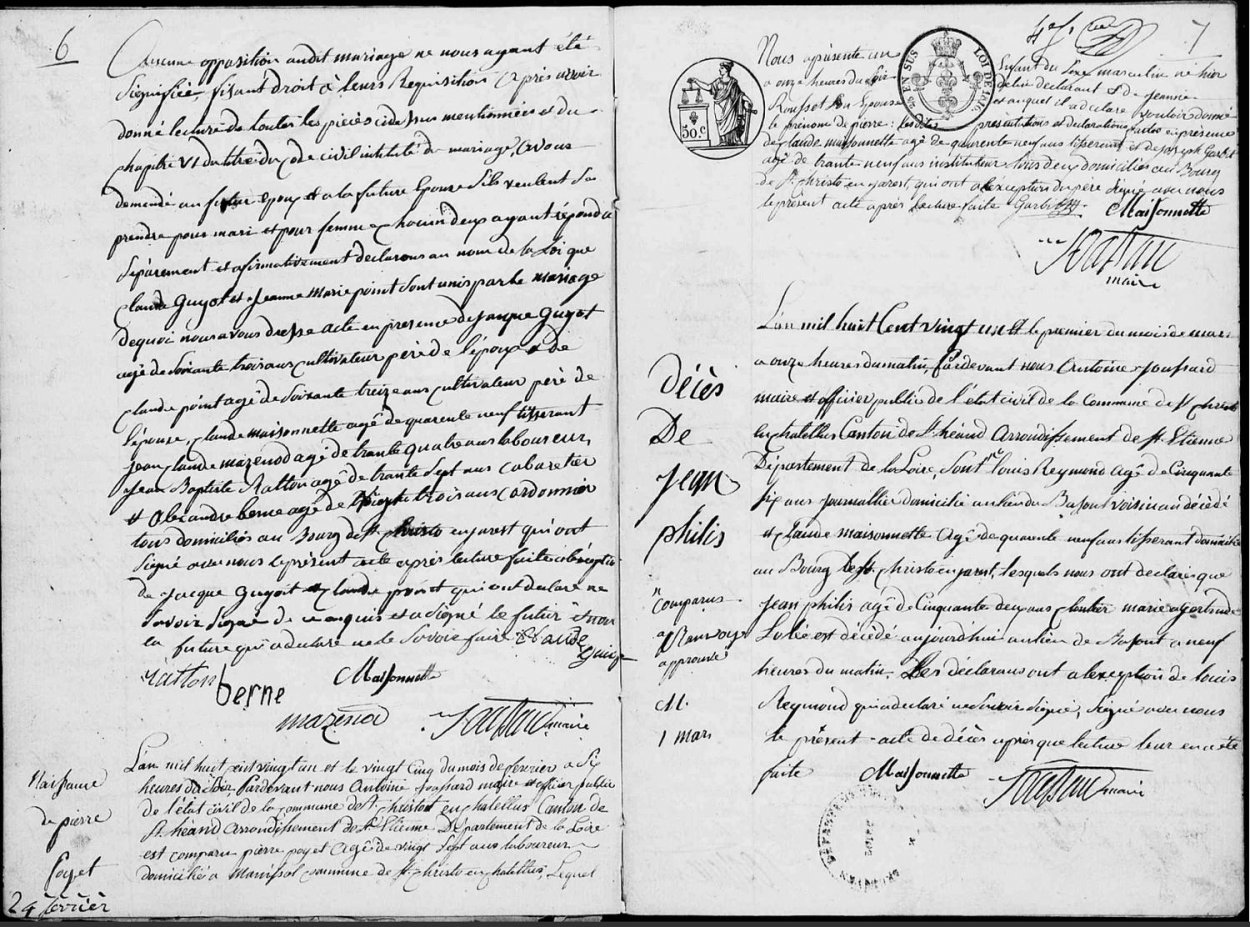 6
Aucune opposition audit mariage ne nous ayant été
signifiée, fisant droit à leurs Requisition après avoir
donné lecture de toutes les pieces ci dessus mentionnées et du
chapitre VI du titre du Code civil intitulé du mariage, avons
demandé au futur epoux et a la future Epouse s'ils veulent se
prendre pour mari et pour femme chacun deux ayant répondu
séparement et afirmativement declarons au nom de la Loi que
Claude Guyot et Jeanne Marie point sont unis par le mariage
De quoi nous avons dressé acte en presence de Jacque Guyot
agé de soixante trois ans cultivateur père de l'époux & De
Claude point agé de soixante treize ans cultivateur père de
l'épouse, Claude maisonnette agé de quarente neuf tisserant
jean Claude mazenod agé de trante quatre ans laboureur,
Jean Baptiste Ratton agé de trante sept ans Cabaretier
et Alexandre berne agé de trois ans Cordonnier
tous domiciliés au Bourg de St. Christo en jarest qui ont
signé avec nous le présent acte après lecture faite a l'exception
de Jacque Guyot et Claude point qui ont declaré ne
savoir signé de ce anquis et a signé le futur et non
la future qui a declaré ne le savoir faire Claude
Guiot
ratton berne Maisonnette
mazenod Joassard maire
Naissance
de pierre
Poyet
24 fevrier
L'an mil huit cent vingt un et le vingt cinq du mois de fevrier a six
heures du soir Pardevant nous Antoine Joassard maire et officier public
de l'état civil de la commune de St. christo en chatellus Canton de
St. héand Arrondissement de St. Etienne Département de la Loire
est comparu pierre poyet agé de vingt sept ans laboureur
domicilié a Manissol commune de St. Christo en chatellus, Lequel
7
Nous a présenté un Enfant du sexe masculin né hier
a onze heures du soir de lui declarant & de jeanne
Rousset son Epouse et auquel il a declaré vouloir donné
le prénom de pierre : les dites présentations et declarations faites en présence
EN SUS
LOI DE 1816
50.c
de Claude maisonnette agé de quarente neuf ans tisserent et de joseph
agé de trante neuf ans instituteur tous deux domiciliés au Bourg
de St. Christo en jarest, qui ont a l'exception du père signé avec nous
le présent acte après lecture faite Maisonnette
Joassard
maire
Décès
De
jean
philis
comparus
renvoye
approuvé
1 mars
L'an mil huit Cent vingt un & le premier du mois de mars
a onze heures du matin, Pardevant nous Antoine Joassard
maire et officier public de l'état civil de la Commune de St. christo
en chatellus Canton de St. héand Arrondissement de St. Etienne
Département de la Loire, sont louis Reymond agé de Cinquante
six ans journallier domicilié au lieu du voisin au décédé
et Claude maisonnette agé de quarente neuf ans tisserant domicilié
au Bourg de St. Christo en jarest, lesquels nous ont declarés que
jean philis agé de Cinquante deux ans marie a Gertrude
est décédé aujourd'hui au lieu de a neuf
heures du matin. Les déclarans ont a l'exception de louis
Reymond qui a declaré ne savoir signé, signé avec nous
le présent acte de décès après que lecture leur en a été
faite Maisonnette Joassard maire